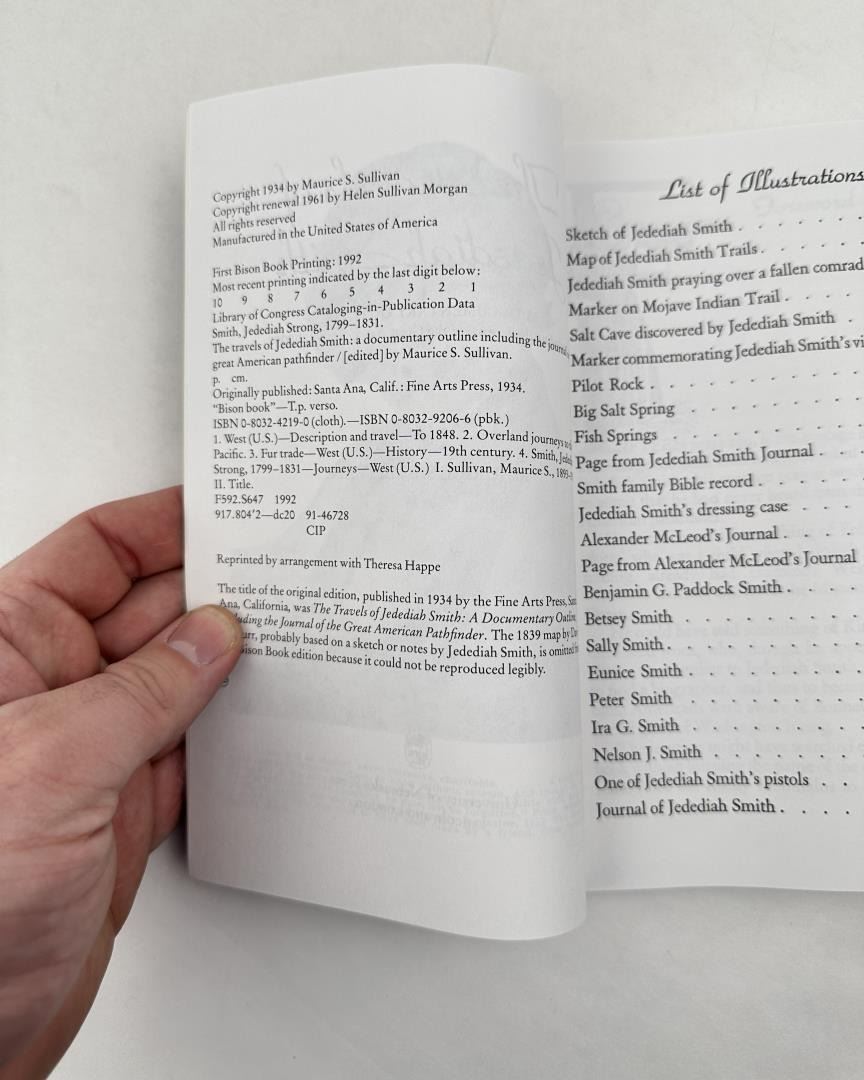 Copyright 1934 by Maurice S. Sullivan
Copyright renewal 1961 by Helen Sullivan Morgan
All rights reserved
Manufactured in the United States of America
First Bison Book Printing: 1992
Most recent printing indicated by the last digit below:
10 9 8 7 6 5 4 3 2 1
Library of Congress Cataloging-in-Publication Data
Smith, Jedediah Strong, 1799–1831.
The travels of Jedediah Smith: a documentary outline including the
great American pathfinder / [edited] by Maurice S. Sullivan.
p. cm.
Originally published: Santa Ana, Calif.: Fine Arts Press, 1934.
"Bison book"—T.p. verso.
ISBN 0-8032-4219-0 (cloth).—ISBN 0-8032-9206-6 (pbk.)
1. West (U.S.)—Description and travel—To 1848. 2. Overland journeys
Pacific. 3. Fur trade—West (U.S.)—History—19th century. 4. Smith,
Strong, 1799–1831—Journeys—West (U.S.) I. Sullivan, Maurice S.,
II. Title.
F592.S647 1992
917.804'2—dc20 91-46728
CIP
Reprinted by arrangement with Theresa Happe
The title of the original edition, published in 1934 by the Fine Arts Press,
Ana, California, was The Travels of Jedediah Smith: A Documentary
the Journal of the Great American Pathfinder. The 1839 map by
probably based on a sketch or notes by Jedediah Smith, is omitted
Book edition because it could not be reproduced legibly.
List of Illustrations
Sketch of Jedediah Smith . . . . .
Map of Jedediah Smith Trails . . . .
Jedediah Smith praying over a fallen comrad
Marker on Mojave Indian Trail . . . .
Salt Cave discovered by Jedediah Smith .
Marker commemorating Jedediah Smith's vi
Pilot Rock . . . . . . . .
Big Salt Spring . . . . . . .
Fish Springs . . . . . . .
Page from Jedediah Smith Journal . .
Smith family Bible record . . . .
Jedediah Smith's dressing case . . .
Alexander McLeod's Journal . . . .
Page from Alexander McLeod's Journal
Benjamin G. Paddock Smith . . . .
Betsey Smith . . . . . . .
Sally Smith . . . . . . . .
Eunice Smith . . . . . . .
Peter Smith . . . . . . .
Ira G. Smith . . . . . . .
Nelson J. Smith . . . . . . .
One of Jedediah Smith's pistols . .
Journal of Jedediah Smith . . . .